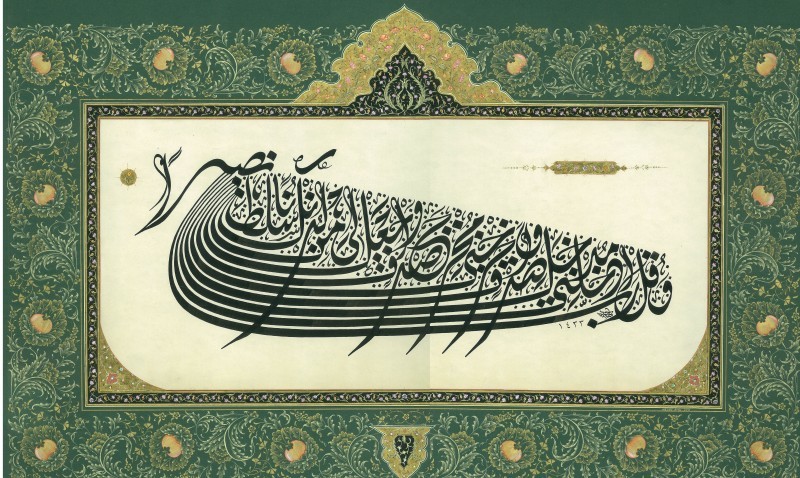 وقل رب ادخلني مدخل صدق واخرجني مخرج صدق واجعل لي من لدنك سلطانا نصيرا
١٤٣٣